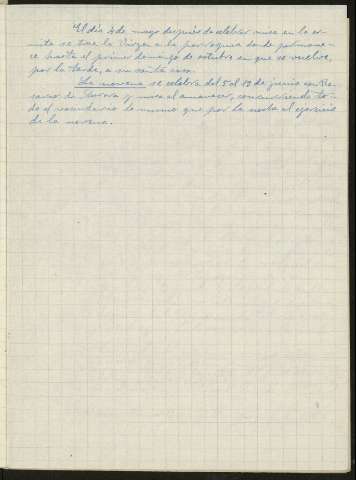 El día 4 de mayo después de celebrar misa en la er-
mita se trae la Virgen a la parroquia donde permane-
ce hasta el primer domingo de octubre en que se vuelve,
por la tarde, a su santa casa.
La novena se celebra del 5 al 13 de junio con Ro-
sario de Aurora y misa al amanecer, concurriendo to-
do el vecindario lo mismo que por la noche al ejercicio
de la novena.